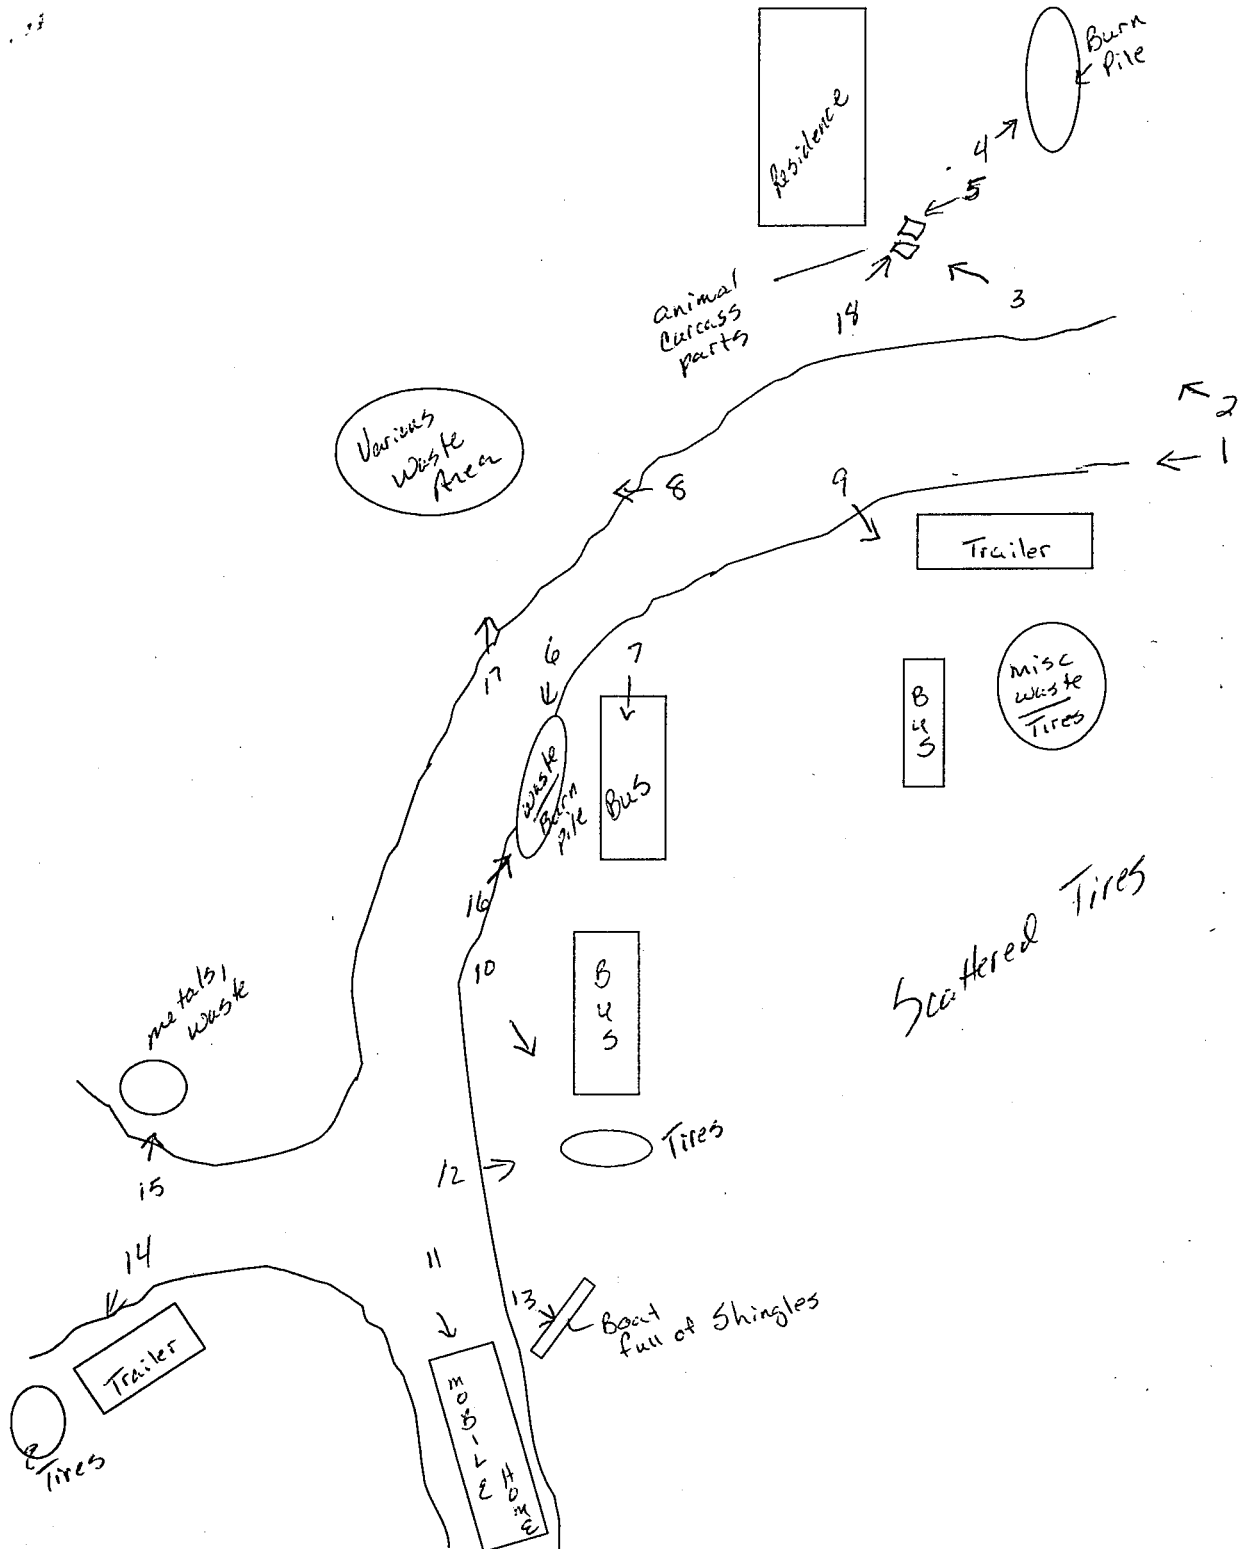 Burn
Pile
Residence
4
5
animal
Carcass
parts
18
3
2
1
Various
Waste
Area
8
9
Trailer
17
6
7
misc
waste
Tires
B
u
s
waste
Burn
pile
Bus
16
10
B
u
s
Scattered Tires
metals,
waste
15
12
Tires
14
11
13
Boat
full of Shingles
Trailer
MOBILE
HOME
Tires